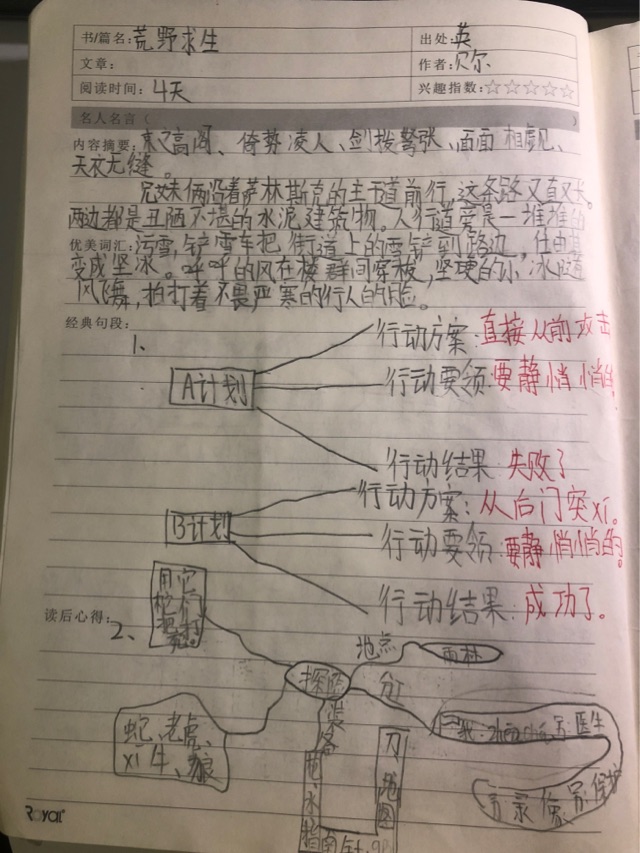 书/篇名: 荒野求生 出处: 英
文章: 作者: 贝尔
阅读时间: 4天 兴趣指数: ☆☆☆☆☆
名人名言 ( )
内容摘要: 束之高阁、倚势凌人、剑拔弩张、面面相觑、
天衣无缝。
兄妹俩沿着萨林斯克的主干道前行,这条路又直又长。
两边都是丑陋不堪的水泥建筑物。人行道旁是一堆堆的
优美词汇: 污雪,铲雪车把街道上的雪铲到路边,任由其
变成坚冰。呼呼的风在楼群间穿梭,坚硬的小冰
风飞舞,拍打着不畏严寒的行人的脸。
经典句段:
1、
A计划
行动方案:直接从前攻击
行动要领:要静悄悄
行动结果:失败了
B计划
行动方案:从后门突xi。
行动要领:要静悄悄的。
行动结果:成功了。
读后心得:
2、
用它
探险
地点
雨林
分
装备
蛇、老虎、
xi牛、狼
刀、地图
医生
保护
ROYAL